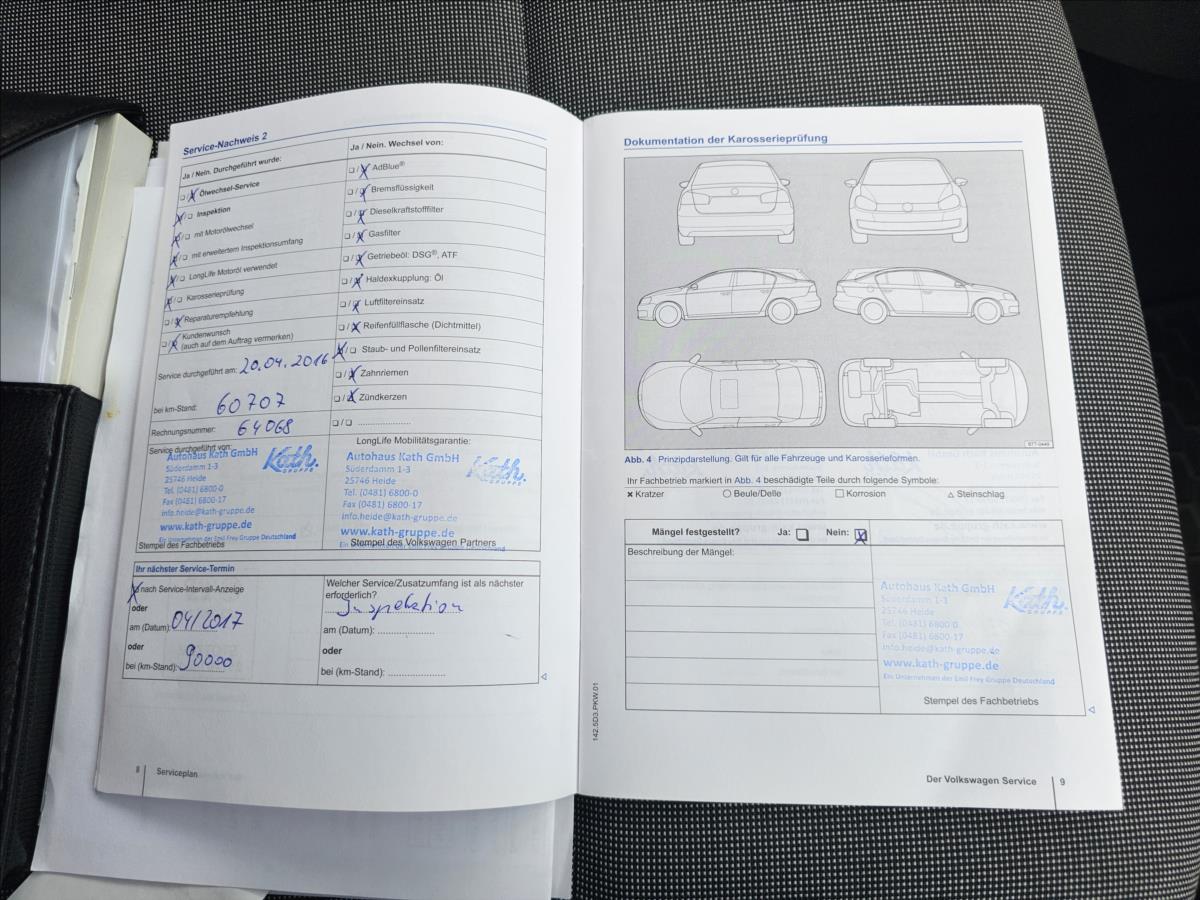 Service-Nachweis 2
Ja / Nein. Durchgeführt wurde:
❏/❏ Ölwechsel-Service
❏/❏ Inspektion
❏/❏ mit Motorölwechsel
❏/❏ mit erweitertem Inspektionsumfang
❏/❏ LongLife Motoröl verwendet
❏/❏ Karosserieprüfung
❏/❏ Reparaturempfehlung
❏/❏ Kundenwunsch
(auch auf dem Auftrag vermerken)
Service durchgeführt am: 20.04.2016
bei km-Stand: 60707
Rechnungsnummer: 64068
Service durchgeführt von:
Autohaus Kath GmbH
Süderdamm 1-3
25746 Heide
Tel. (0481) 6800-0
Fax (0481) 6800-17
info.heide@kath-gruppe.de
www.kath-gruppe.de
Ein Unternehmen der Emil Frey Gruppe Deutschland
Kath.
GRUPPE
Stempel des Fachbetriebs
Ja / Nein. Wechsel von:
❏/❏ AdBlue®
❏/❏ Bremsflüssigkeit
❏/❏ Dieselkraftstofffilter
❏/❏ Gasfilter
❏/❏ Getriebeöl: DSG®, ATF
❏/❏ Haldexkupplung: Öl
❏/❏ Luftfiltereinsatz
❏/❏ Reifenfüllflasche (Dichtmittel)
❏/❏ Staub- und Pollenfiltereinsatz
❏/❏ Zahnriemen
❏/❏ Zündkerzen
❏/❏ .....................
LongLife Mobilitätsgarantie:
Autohaus Kath GmbH
Süderdamm 1-3
25746 Heide
Tel. (0481) 6800-0
Fax (0481) 6800-17
info.heide@kath-gruppe.de
www.kath-gruppe.de
Kath.
GRUPPE
Stempel des Volkswagen Partners
Ihr nächster Service-Termin
nach Service-Intervall-Anzeige
oder
am (Datum): 04/2017
oder
bei (km-Stand): 90000
Welcher Service/Zusatzumfang ist als nächster
erforderlich?
Inspektion
am (Datum): ....................
oder
bei (km-Stand): ....................
8 Serviceplan
Dokumentation der Karosserieprüfung
B7T-0449
Abb. 4 Prinzipdarstellung. Gilt für alle Fahrzeuge und Karosserieformen.
Ihr Fachbetrieb markiert in Abb. 4 beschädigte Teile durch folgende Symbole:
× Kratzer ○ Beule/Delle □ Korrosion △ Steinschlag
Mängel festgestellt? Ja: ❏ Nein: ❏
Beschreibung der Mängel:
Autohaus Kath GmbH
Süderdamm 1-3
25746 Heide
Tel. (0481) 6800-0
Fax (0481) 6800-17
info.heide@kath-gruppe.de
www.kath-gruppe.de
Ein Unternehmen der Emil Frey Gruppe Deutschland
Kath.
GRUPPE
Stempel des Fachbetriebs
142.5D3.PKW.01
Der Volkswagen Service 9